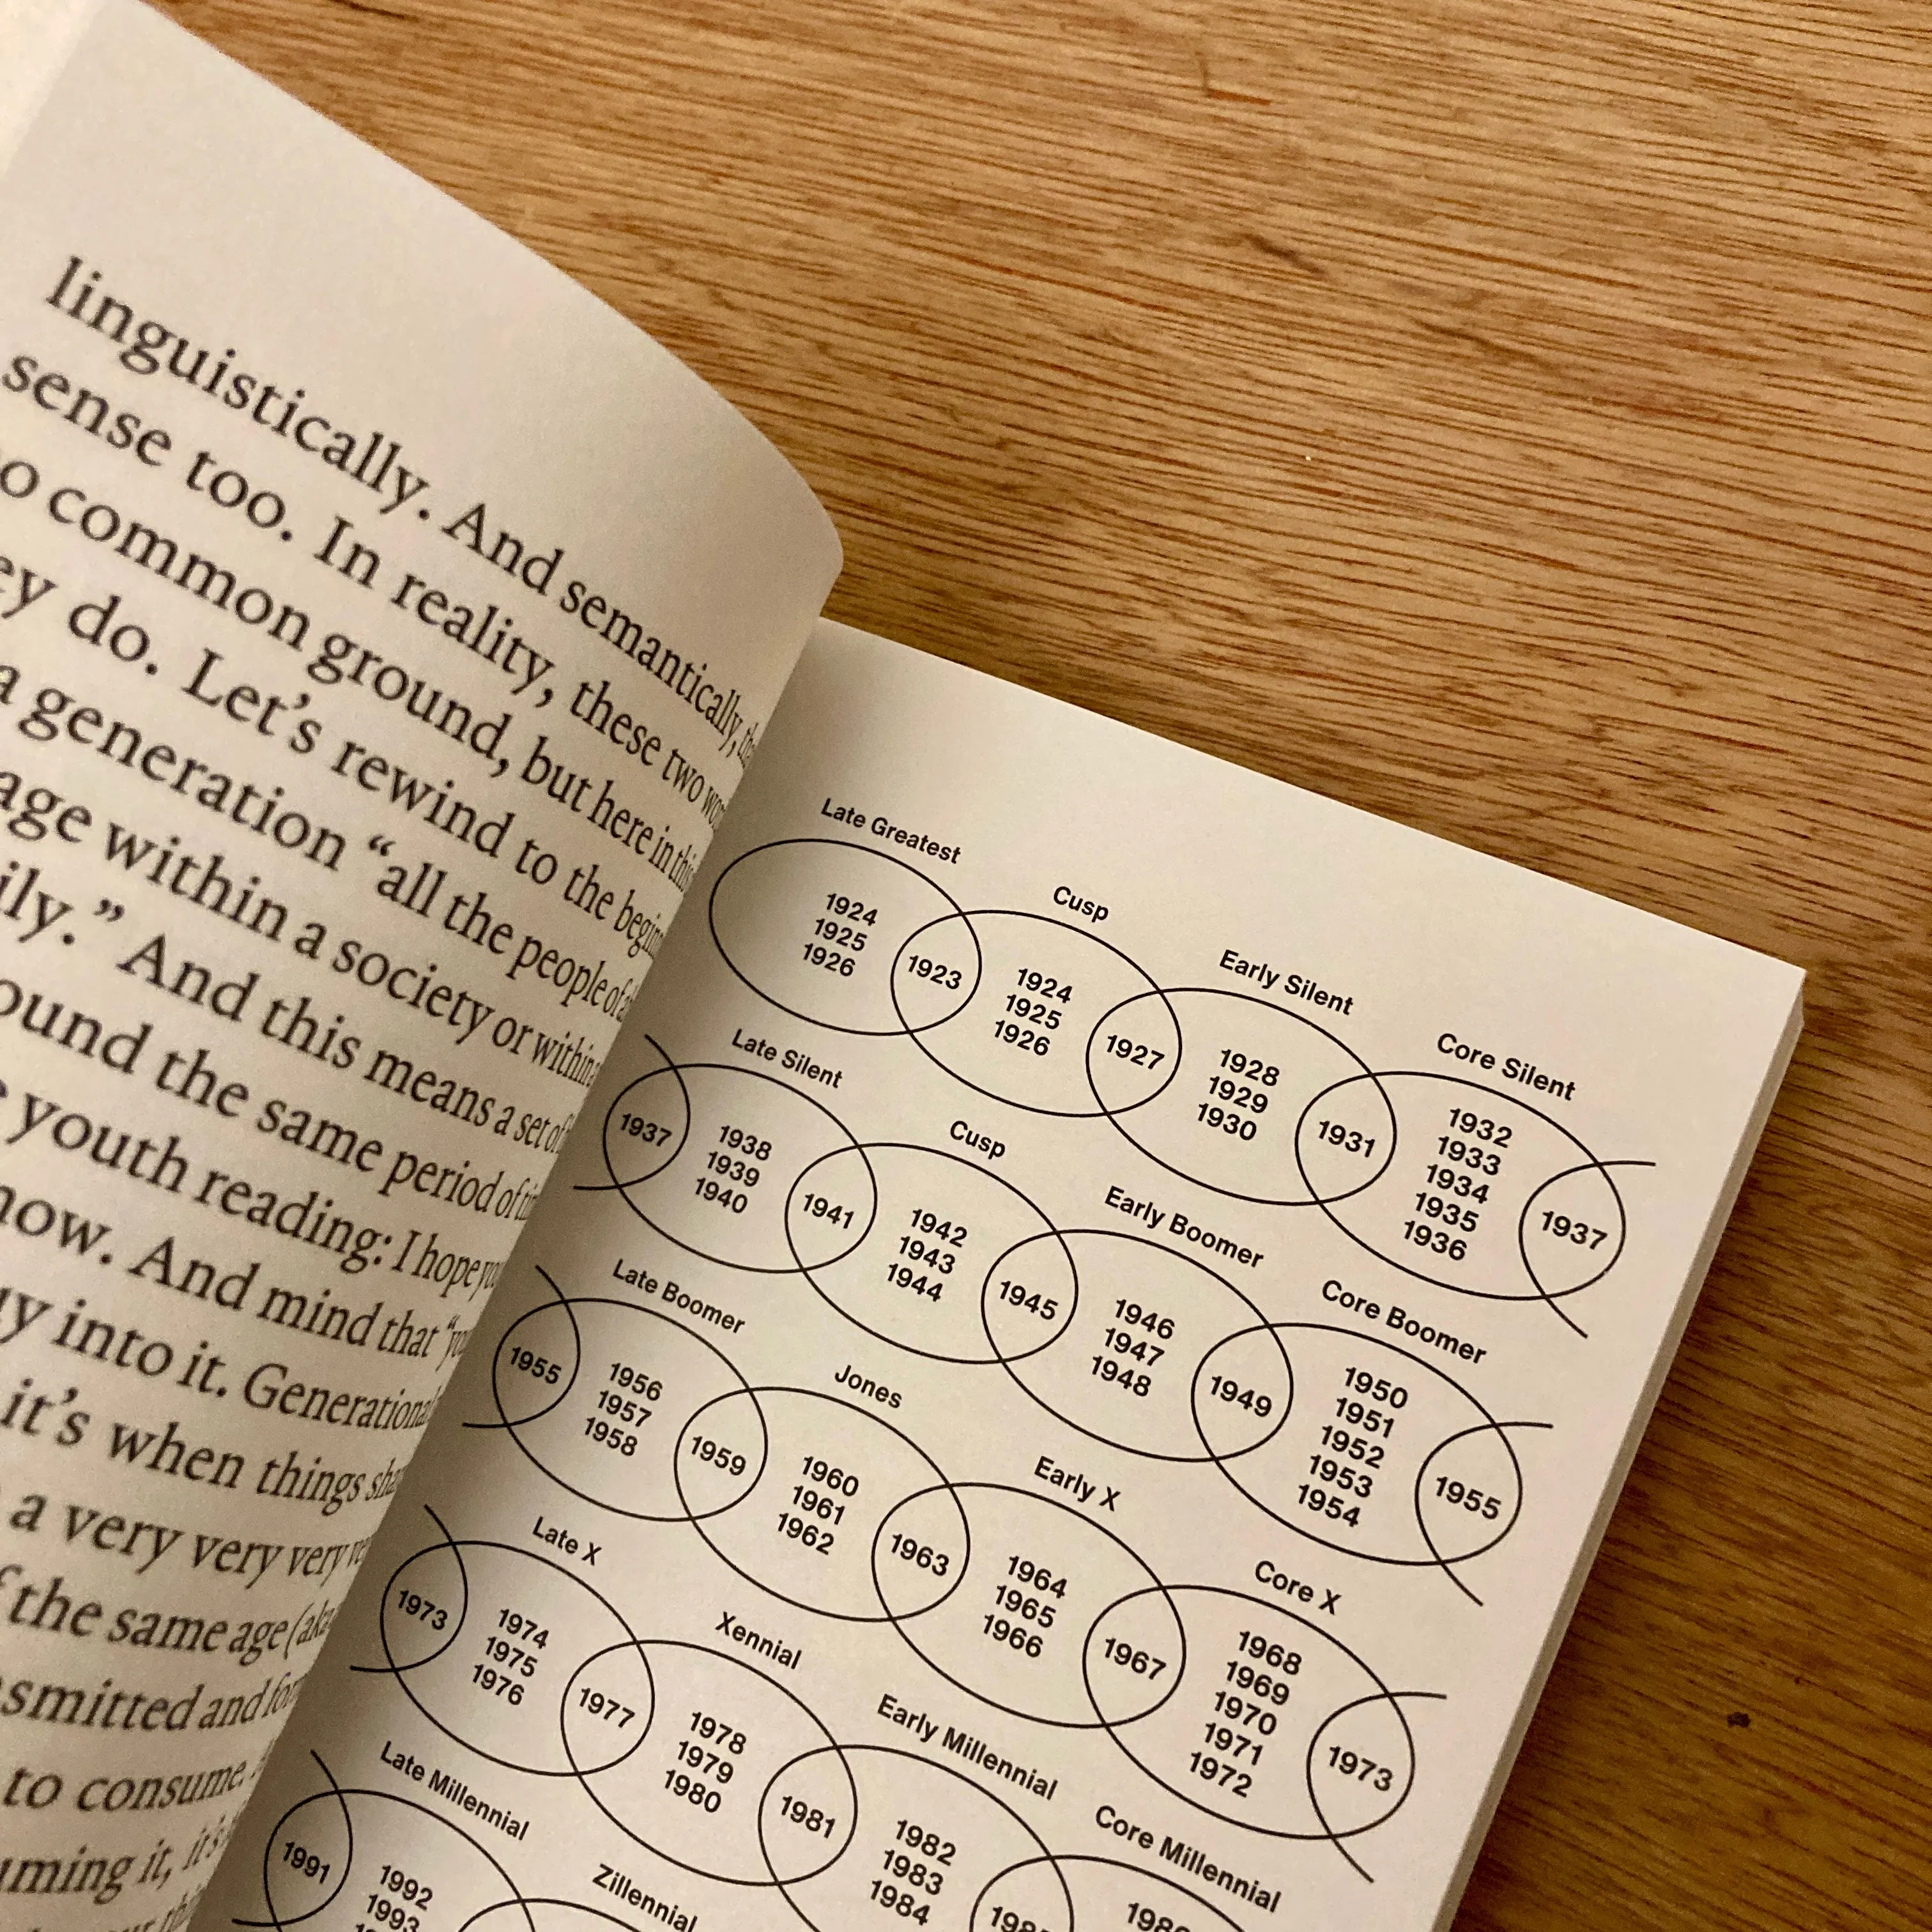 linguistically. And semantically,
sense too. In reality, these two
common ground, but here in this
do. Let's rewind to the
a generation "all the people of
age within a society or within
." And this means a set of
the same period of
youth reading: I hope
now. And mind that
into it. Generational
it's when things
a very very very
the same age (aka
and
to consume.
it, it's
Late Greatest
1924
1925
1926
1923
Cusp
1924
1925
1926
1927
Early Silent
1928
1929
1930
1931
Core Silent
1932
1933
1934
1935
1936
1937
Late Silent
1937
1938
1939
1940
1941
Cusp
1942
1943
1944
1945
Early Boomer
1946
1947
1948
1949
Core Boomer
1950
1951
1952
1953
1954
1955
Late Boomer
1955
1956
1957
1958
1959
Jones
1960
1961
1962
1963
Early X
1964
1965
1966
1967
Core X
1968
1969
1970
1971
1972
1973
Late X
1973
1974
1975
1976
1977
Xennial
1978
1979
1980
1981
Early Millennial
1982
1983
1984
Core Millennial
Late Millennial
1991
1992
1993
Zillennial